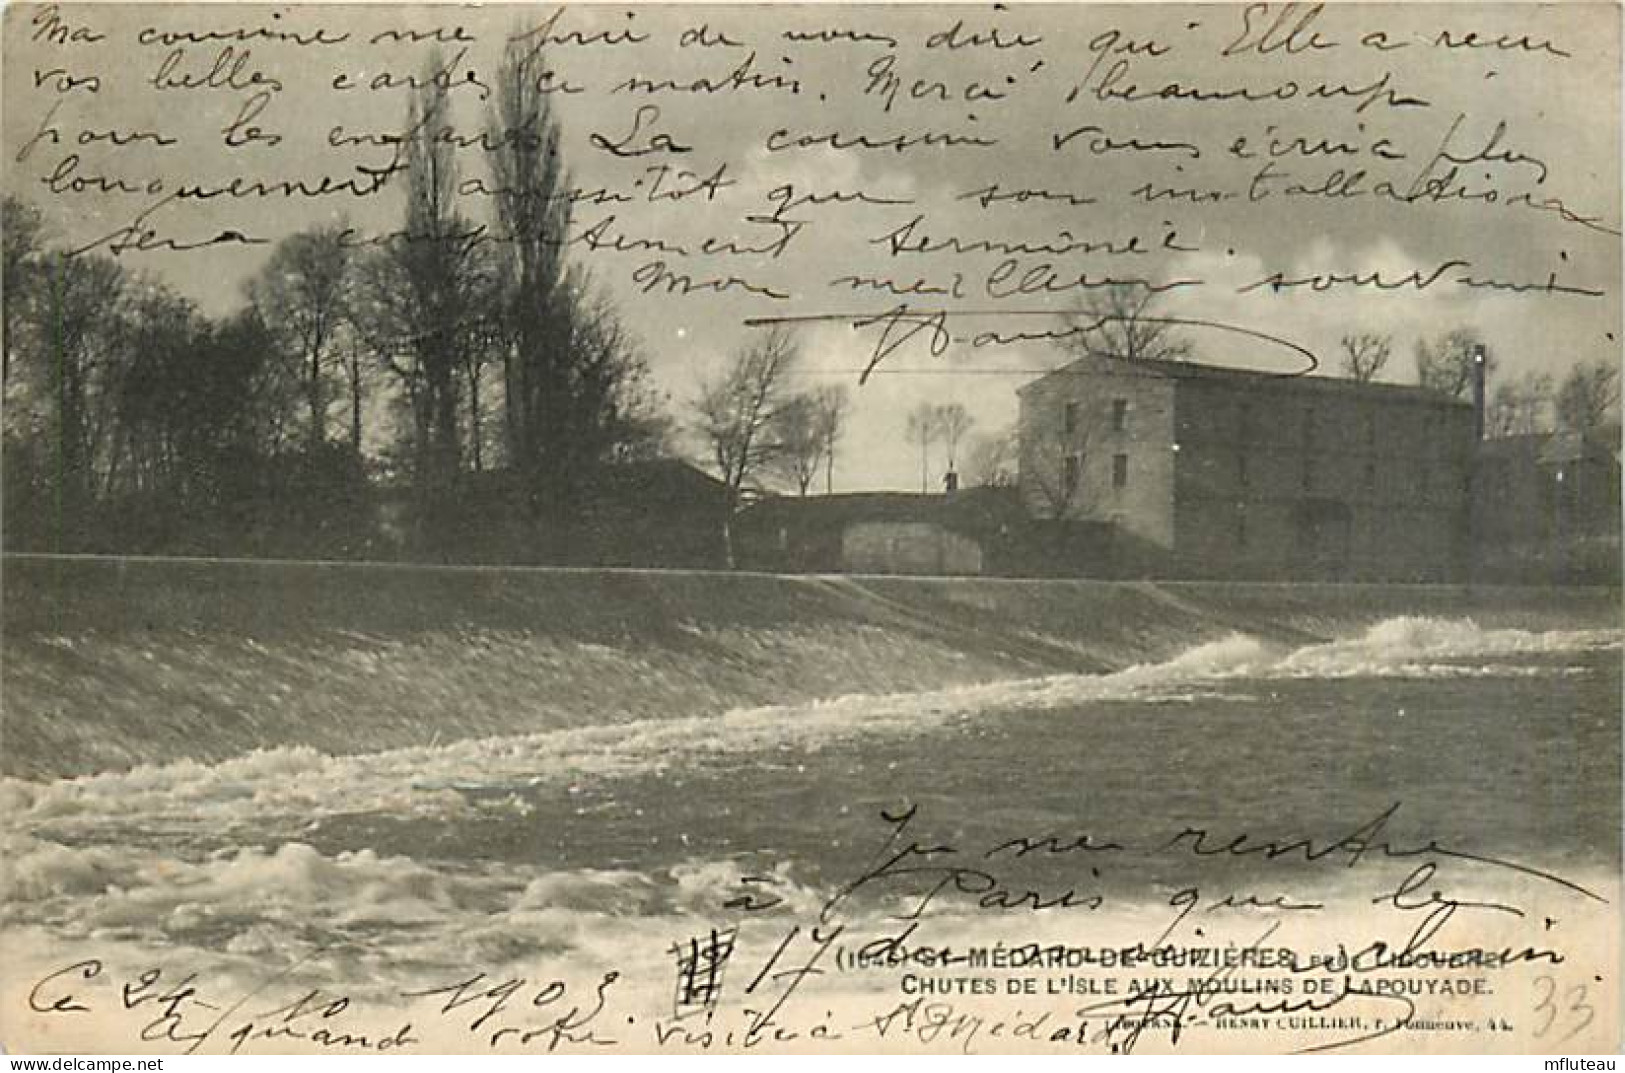 Ma cousine me prie de vous dire qu'Elle a recu
vos belles cartes ce matin. Merci beaucoup
pour les enfants. La cousine vous écrira plus
longuement aussitôt que son installation
sera complètement terminée.
Mon meilleur souvenir
Je ne rentre
à Paris que le
17 du mois prochain
ST MÉDARD-DE-GUIZIÈRES, PRÈS LIBOURNE.
CHUTES DE L'ISLE AUX MOULINS DE LAPOUYADE.
Ce 24- 10 1903
LIBOURNE. — HENRY CUILLIER, r. Fonneuve, 44.
A quand votre visite à St Médard
33
mfluteau